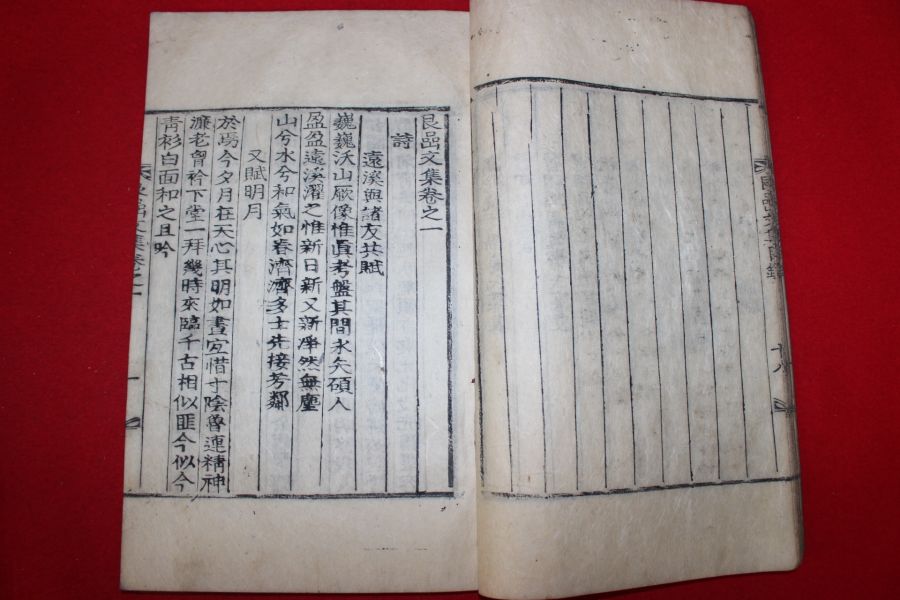 艮喦文集卷之一
詩
遠溪與諸友共賦
巍巍沃山厥像惟眞考盤其間永矢碩人
盈盈遠溪濯之惟新日新又新凈然無塵
山兮水兮和氣如春濟濟多士先接芳鄰
又賦明月
於焉今夕月在天心其明如晝宜惜寸陰魯連精神
濂老胷衿下堂一拜幾時來臨千古相似匪今似今
靑衫白面和之且吟
文集卷之一
一